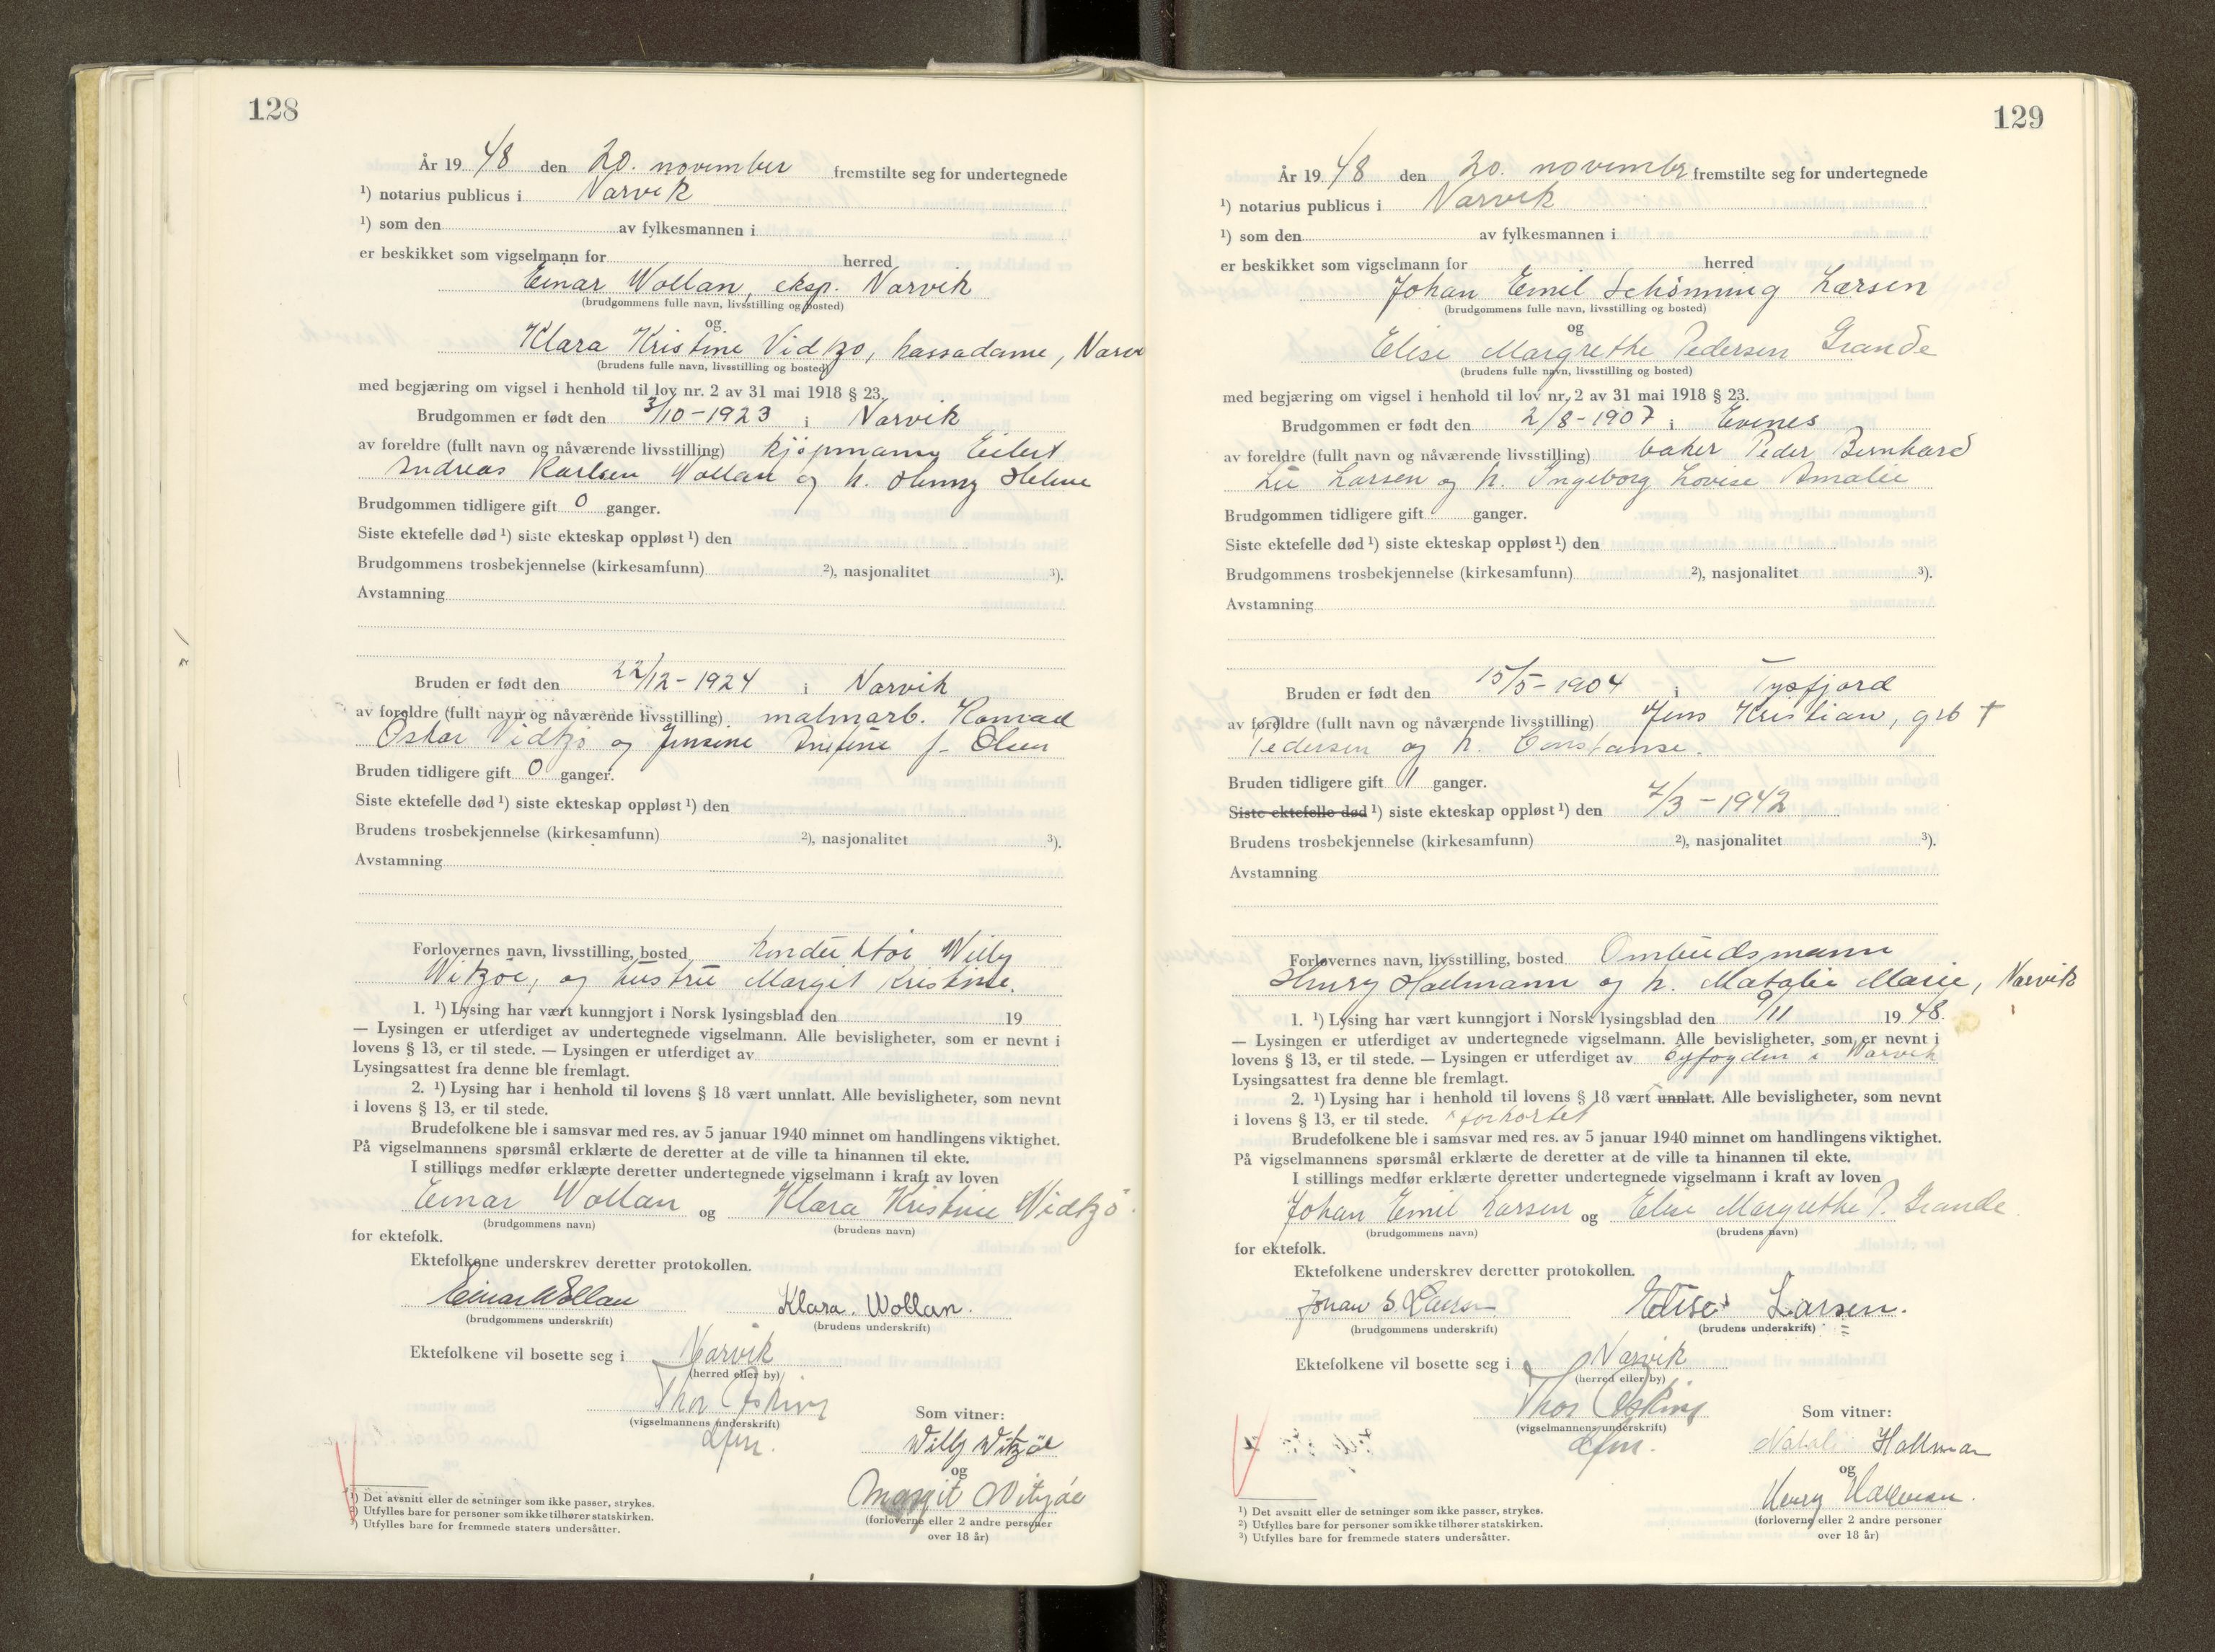 128
År 1948 den 20. november fremstilte seg for undertegnede
¹) notarius publicus i Narvik
¹) som den av fylkesmannen i
er beskikket som vigselmann for herred
Einar Wollan, eksp. Narvik
(brudgommens fulle navn, livsstilling og bosted)
og
Klara Kristine Vidtzo, kassadame, Narv
(brudens fulle navn, livsstilling og bosted)
med begjæring om vigsel i henhold til lov nr. 2 av 31 mai 1918 § 23.
Brudgommen er født den 3/10-1923 i Narvik
av foreldre (fullt navn og nåværende livsstilling) kjøpmann Eilert
Andreas Karlsen Wollan og h. Henny Helene
Brudgommen tidligere gift 0 ganger.
Siste ektefelle død ¹) siste ekteskap oppløst ¹) den
Brudgommens trosbekjennelse (kirkesamfunn) ²), nasjonalitet ³).
Avstamning
Bruden er født den 22/12-1924 i Narvik
av foreldre (fullt navn og nåværende livsstilling) malmarb. Konrad
Oskar Vidtzö og Jensine f. Olsen
Bruden tidligere gift 0 ganger.
Siste ektefelle død ¹) siste ekteskap oppløst ¹) den
Brudens trosbekjennelse (kirkesamfunn) ²), nasjonalitet ³).
Avstamning
Forlovernes navn, livsstilling, bosted konduktör Willy
Witzöe, og hustru Margit Kristine.
1. ¹) Lysing har vært kunngjort i Norsk lysingsblad den 19
— Lysingen er utferdiget av undertegnede vigselmann. Alle bevisligheter, som er nevnt i
lovens § 13, er til stede. — Lysingen er utferdiget av
Lysingsattest fra denne ble fremlagt.
2. ¹) Lysing har i henhold til lovens § 18 vært unnlatt. Alle bevisligheter, som nevnt
i lovens § 13, er til stede.
Brudefolkene ble i samsvar med res. av 5 januar 1940 minnet om handlingens viktighet.
På vigselmannens spørsmål erklærte de deretter at de ville ta hinannen til ekte.
I stillings medfør erklærte deretter undertegnede vigselmann i kraft av loven
Einar Wollan og Klara Kristine Vidtzö.
(brudgommens navn) (brudens navn)
for ektefolk.
Ektefolkene underskrev deretter protokollen.
Einar Wollan Klara. Wollan.
(brudgommens underskrift) (brudens underskrift)
Ektefolkene vil bosette seg i Narvik
(herred eller by)
Thor Østring
(vigselmannens underskrift)
dfm.
Som vitner:
Willy Witzöe
og
Margit Witzöe
(forloverne eller 2 andre personer
over 18 år)
¹) Det avsnitt eller de setninger som ikke passer, strykes.
²) Utfylles bare for personer som ikke tilhører statskirken.
³) Utfylles bare for fremmede staters undersåtter.
129
År 1948 den 20. novembr fremstilte seg for undertegnede
¹) notarius publicus i Narvik
¹) som den av fylkesmannen i
er beskikket som vigselmann for herred
Johan Emil Schönning Larsen
(brudgommens fulle navn, livsstilling og bosted)
og
Elise Margrethe Pedersen Grande
(brudens fulle navn, livsstilling og bosted)
med begjæring om vigsel i henhold til lov nr. 2 av 31 mai 1918 § 23.
Brudgommen er født den 2/8-1907 i Evenes
av foreldre (fullt navn og nåværende livsstilling) baker Peder Bernhard
Lu Larsen og h. Ingeborg Lovise Amalie
Brudgommen tidligere gift ganger.
Siste ektefelle død ¹) siste ekteskap oppløst ¹) den
Brudgommens trosbekjennelse (kirkesamfunn) ²), nasjonalitet ³).
Avstamning
Bruden er født den 15/5-1904 i Tysfjord
av foreldre (fullt navn og nåværende livsstilling) Jens Kristian, grb †
Pedersen og h. Constanse.
Bruden tidligere gift 1 ganger.
Siste ektefelle død ¹) siste ekteskap oppløst ¹) den 7/3-1942
Brudens trosbekjennelse (kirkesamfunn) ²), nasjonalitet ³).
Avstamning
Forlovernes navn, livsstilling, bosted Ombudsmann
Henry Hallmann og h. Natalie Marie, Narvik
1. ¹) Lysing har vært kunngjort i Norsk lysingsblad den 9/11 1948.
— Lysingen er utferdiget av undertegnede vigselmann. Alle bevisligheter, som er nevnt i
lovens § 13, er til stede. — Lysingen er utferdiget av byfogden i Narvik
Lysingsattest fra denne ble fremlagt.
2. ¹) Lysing har i henhold til lovens § 18 vært unnlatt. Alle bevisligheter, som nevnt
i lovens § 13, er til stede. forkortet
Brudefolkene ble i samsvar med res. av 5 januar 1940 minnet om handlingens viktighet.
På vigselmannens spørsmål erklærte de deretter at de ville ta hinannen til ekte.
I stillings medfør erklærte deretter undertegnede vigselmann i kraft av loven
Johan Emil Larsen og Elise Margrethe P. Grande
(brudgommens navn) (brudens navn)
for ektefolk.
Ektefolkene underskrev deretter protokollen.
Johan S. Larsen Elise Larsen.
(brudgommens underskrift) (brudens underskrift)
Ektefolkene vil bosette seg i Narvik
(herred eller by)
Thor Østring
(vigselmannens underskrift)
dfm.
Som vitner:
Natali Hallman
og
Henry Hallman.
(forloverne eller 2 andre personer
over 18 år)
¹) Det avsnitt eller de setninger som ikke passer, strykes.
²) Utfylles bare for personer som ikke tilhører statskirken.
³) Utfylles bare for fremmede staters undersåtter.